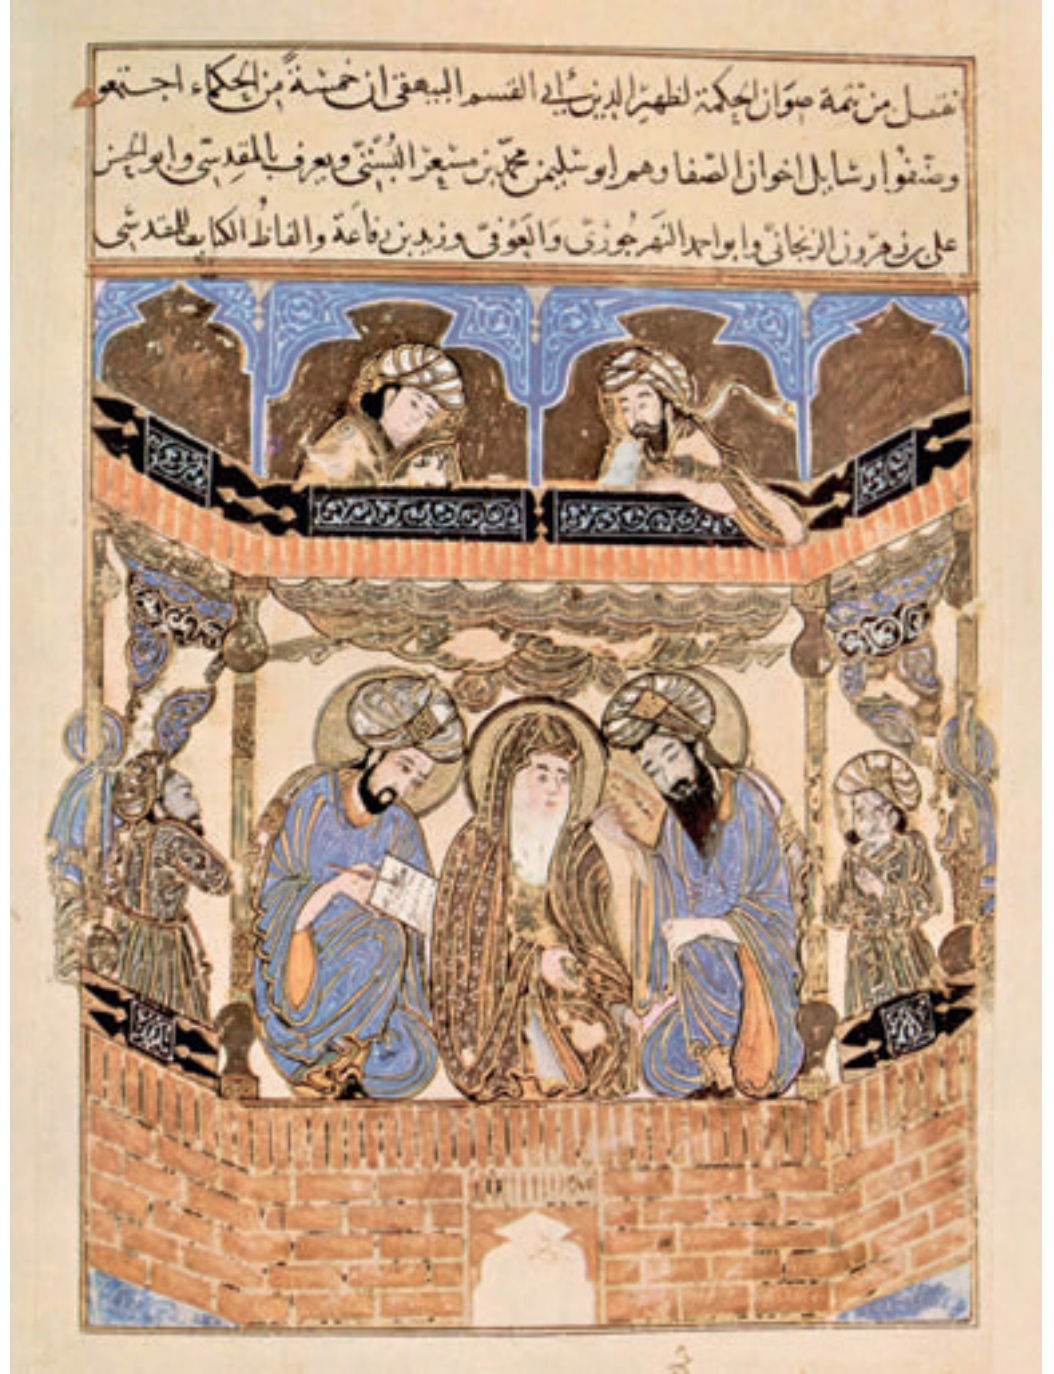 نقل من تتمة صوان الحكمة لظهير الدين أبي القسم البيهقي ان خمسة من الحكماء اجتمعو
وصنفوا رسايل اخوان الصفا وهم ابو سليمن محمد بن مسعر البستي ويعرف بالمقدسي وابو الحسن
علي بن هرون الزنجاني وابو احمد النهرجوري والعوفي وزيد بن رفاعة والفاظ الكتاب للمقدسي